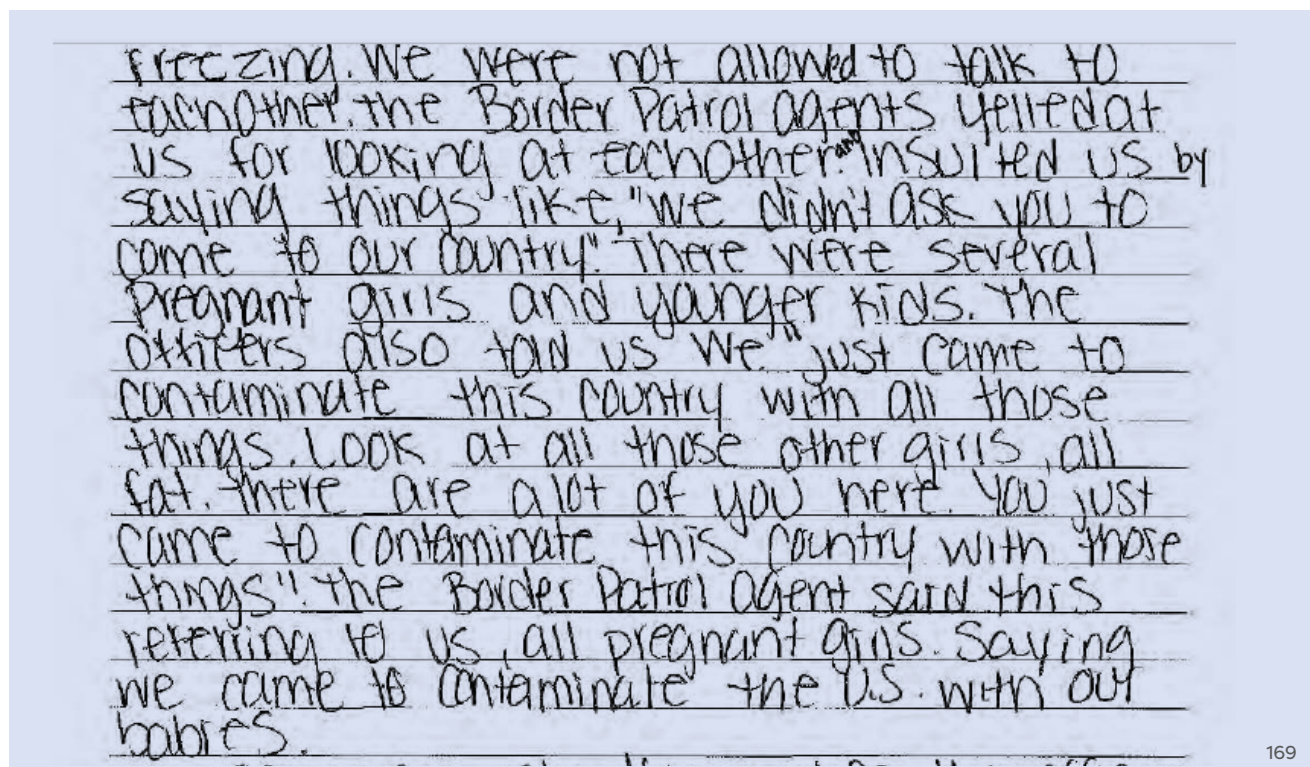 freezing. We were not allowed to talk to
eachother. the Border Patrol agents yelled at
us for looking at eachother. and insulted us by
saying things like, "we didn't ask you to
come to our country". There were several
pregnant girls and younger kids. The
officers also told us we "just came to
contaminate this country with all those
things. Look at all those other girls, all
fat. there are alot of you here. You just
came to contaminate this country with those
things". The Border Patrol Agent said this
referring to us, all pregnant girls. Saying
we came to contaminate the U.S. with our
babies.
169